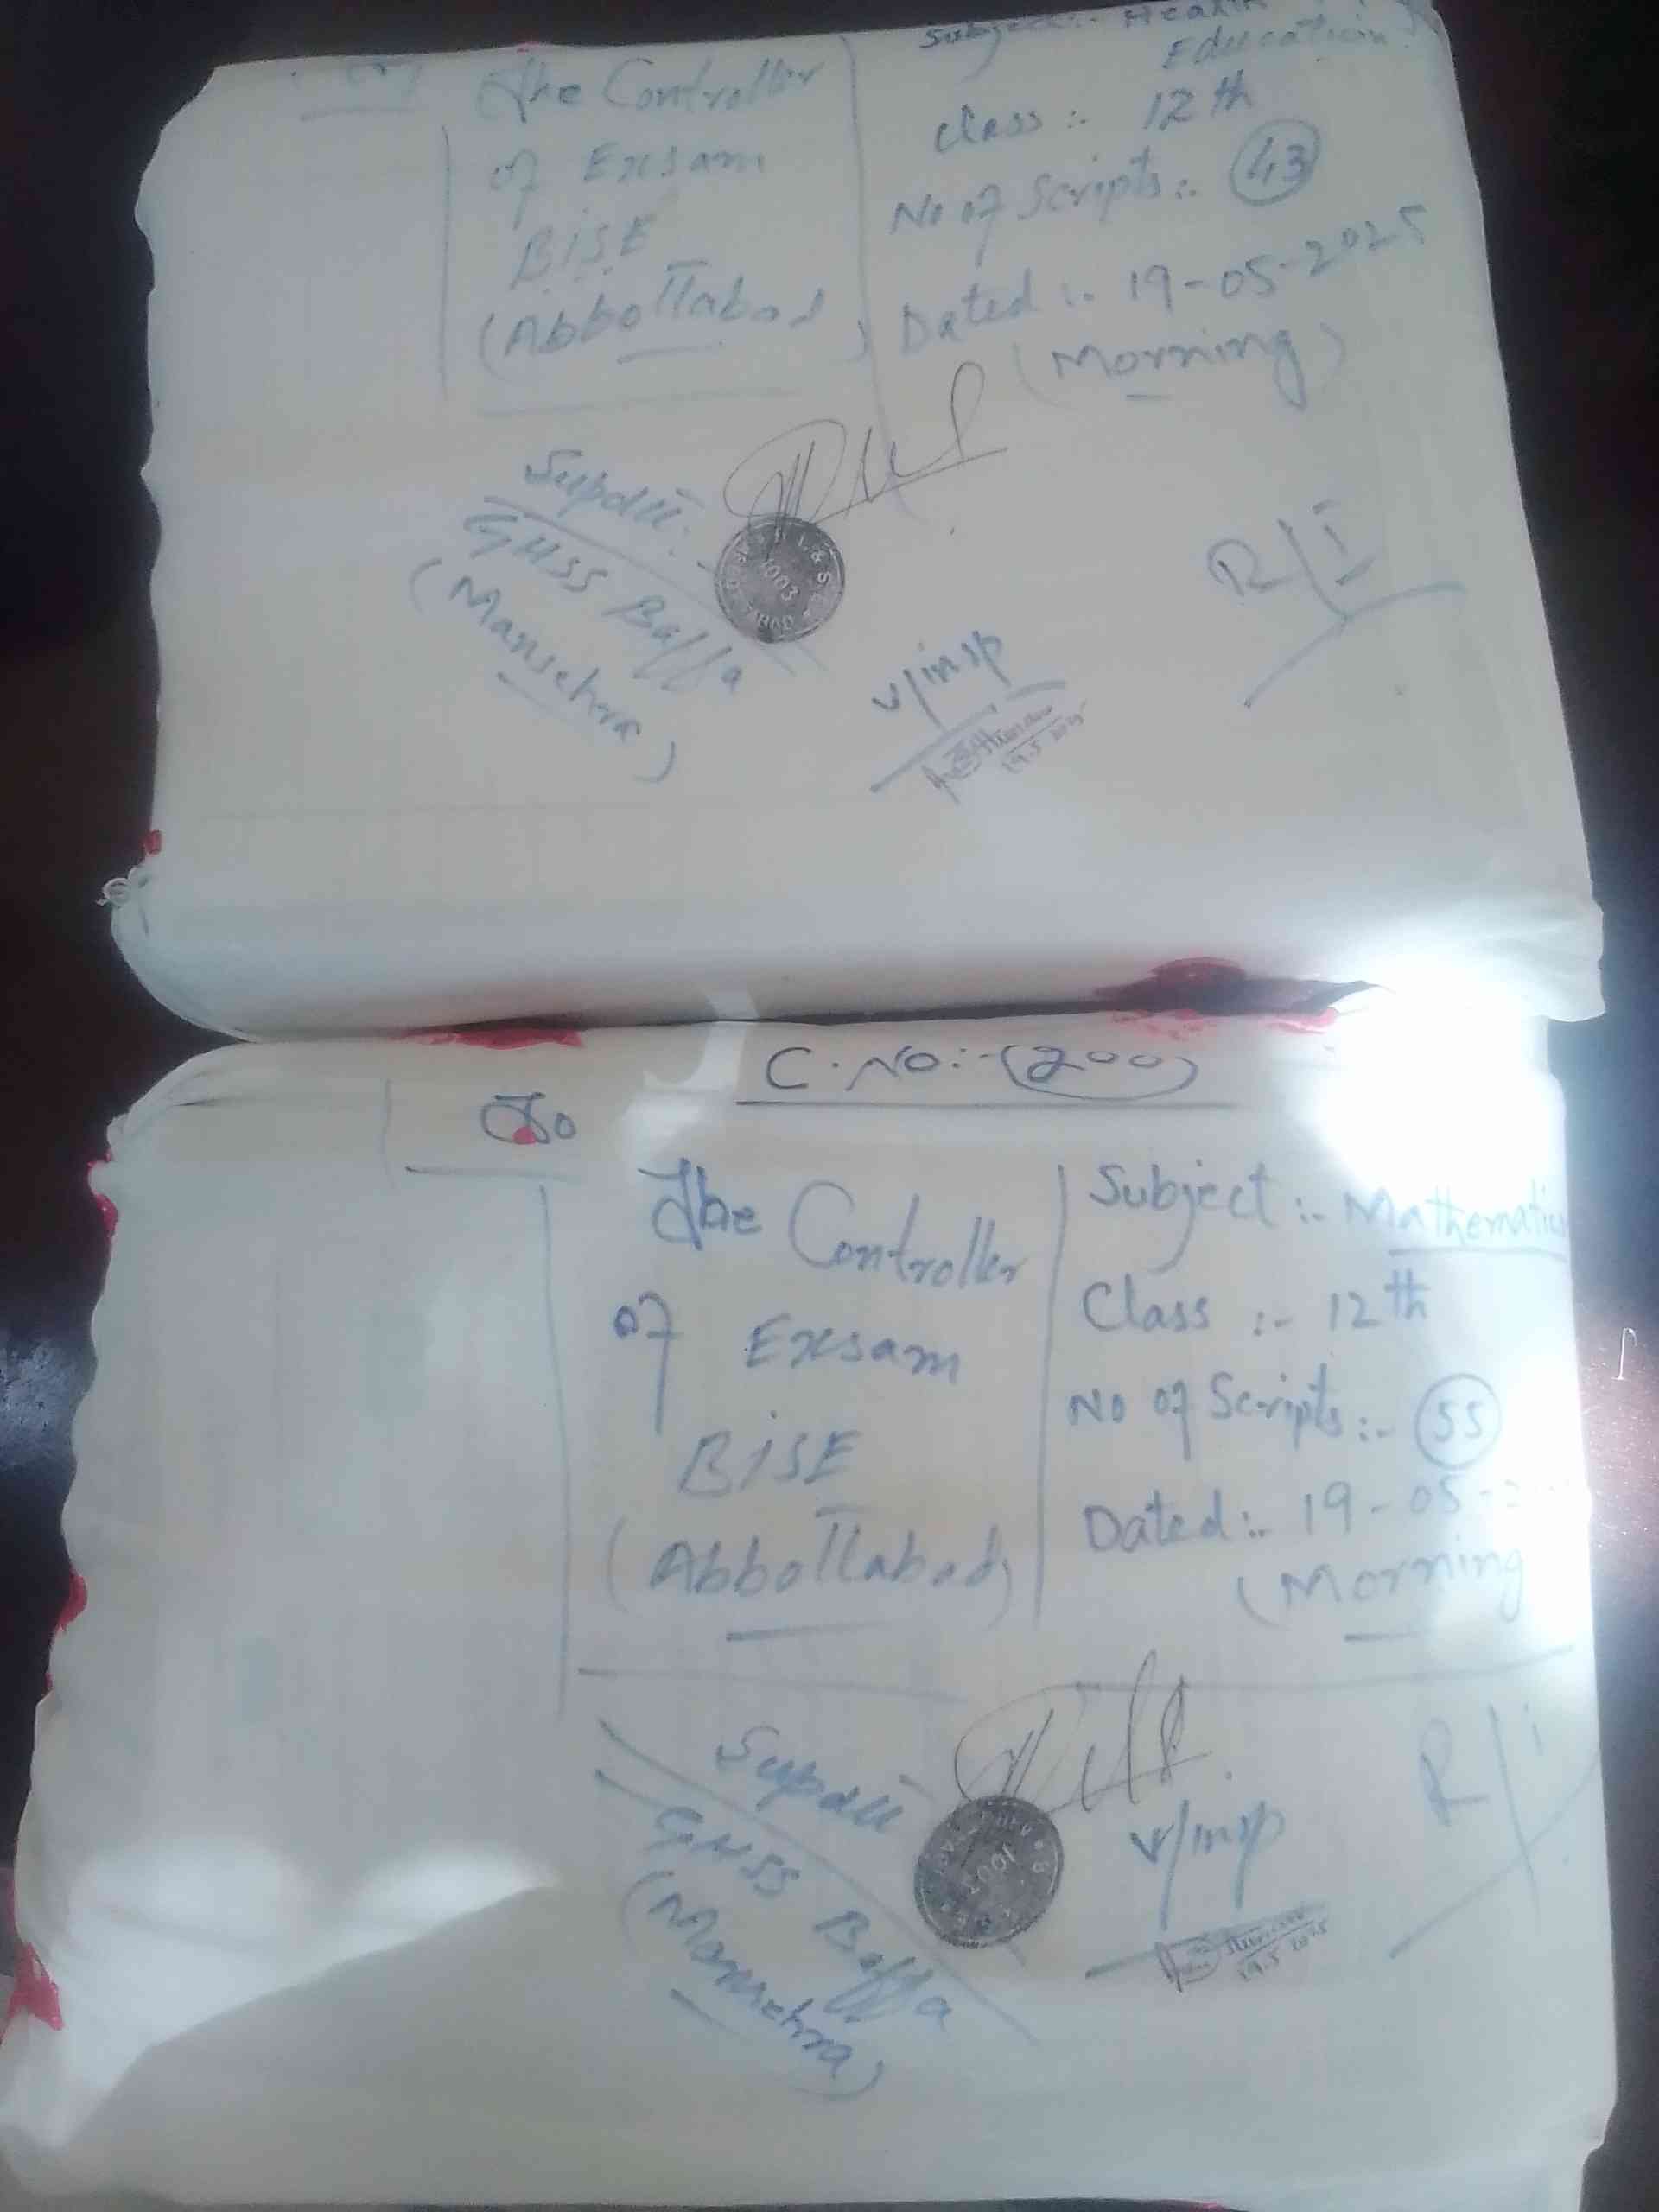 Subject:- Health
Education
The Controller
of Exsam
BISE
(Abbottabad)
Class :- 12th
No of Scripts:- 43
Dated :- 19-05-2025
(Morning)
Supdtt:
GHSS Baffa
(Mansehra)
1003
v/insp
19.5.2025
R/I
C.No:- (200)
To
The Controller
of Exsam
BISE
(Abbottabad)
Subject :- Mathematics
Class :- 12th
No of Scripts:- 55
Dated:- 19-05-
(Morning
Supdtt
GHSS Baffa
(Mansehra)
1003
v/insp
19.5.2025
R/i